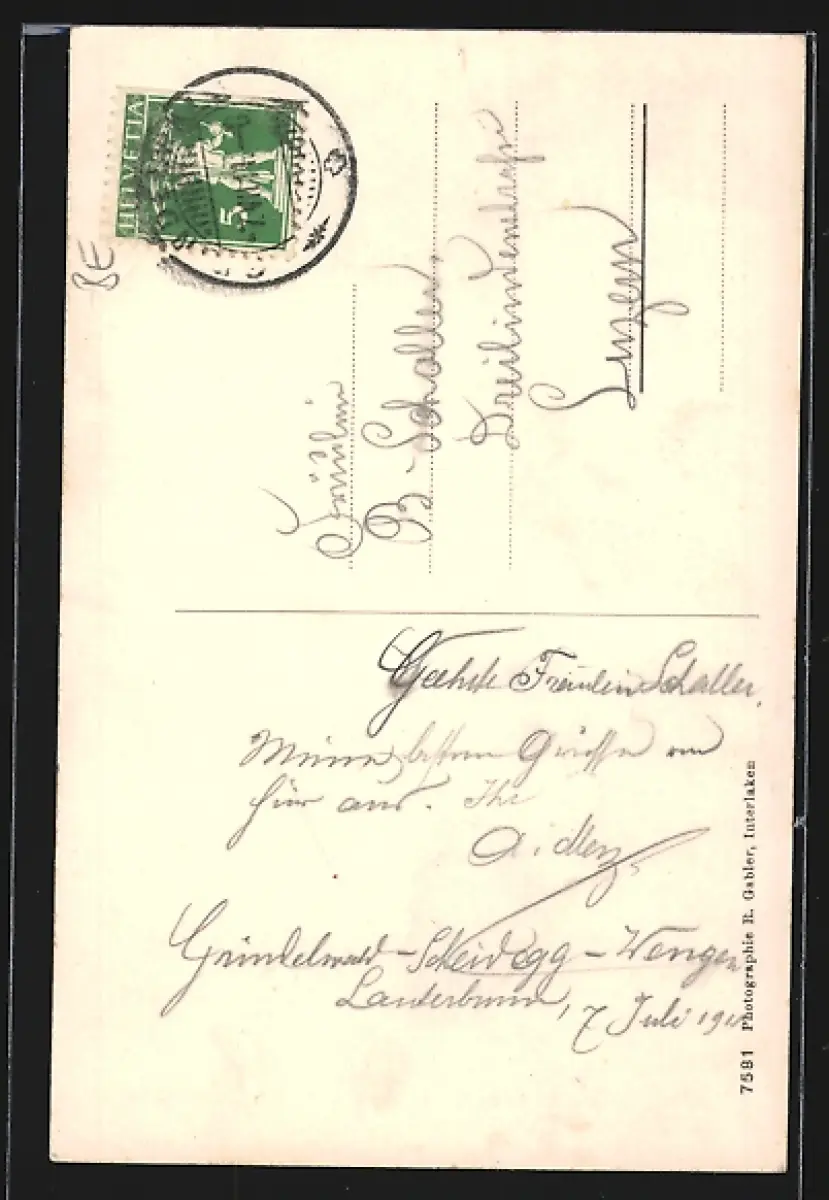 HELVETIA
5
BE
Fräulein
B. Schaller,
Dreilinden
Luzern
Geehrte Fräulein Schaller,
Meine besten Grüsse von
hier aus. Ihr
Grindelwald - Scheidegg - Wengen
Lauterbrunn, 7 Juli
7581 Photographie R. Gabler, Interlaken